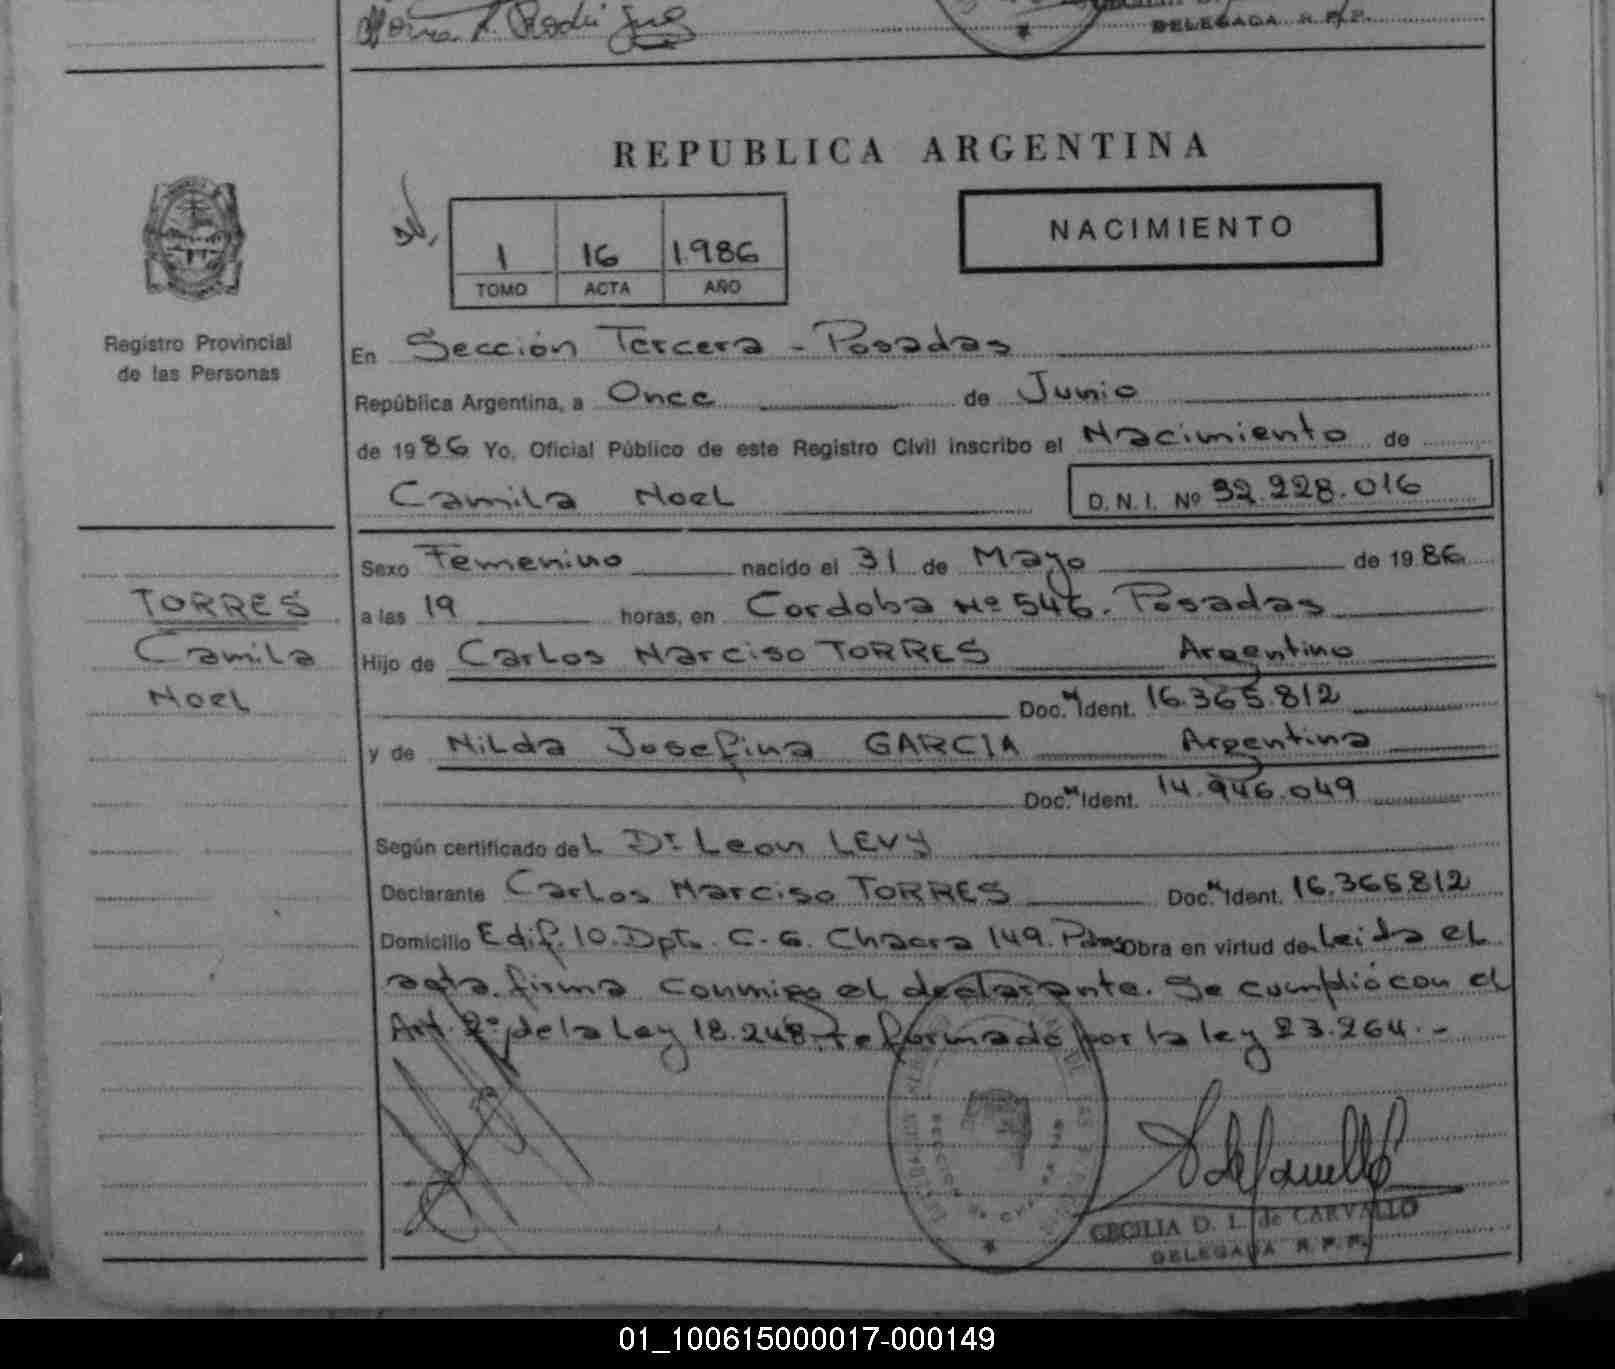 Norma R. Rodriguez
DELEGADA R.P.P.
REPUBLICA ARGENTINA
1 16 1.986
TOMO ACTA AÑO
NACIMIENTO
Registro Provincial
de las Personas
En Sección Tercera - Posadas
República Argentina, a Once de Junio
de 1986 Yo, Oficial Público de este Registro Civil inscribo el Nacimiento de
Camila Noel D.N.I. Nº 92.228.016
Sexo Femenino nacido el 31 de Mayo de 1986
TORRES
Camila
Noel
a las 19 horas, en Cordoba Nº 546. Posadas
Hijo de Carlos Narciso TORRES Argentino
Doc. Ident. 16.365.812
y de Nilda Josefina GARCIA Argentina
Doc. Ident. 14.946.049
Según certificado del Dr Leon LEVY
Declarante Carlos Narciso TORRES Doc. Ident. 16.365.812
Domicilio Edif. 10. Dpto. C-G. Chacra 149. Pdas Obra en virtud de Leida el
acta firma conmigo el declarante. Se cumplió con el
Art. 2º de la Ley 18.248 reformado por la ley 23.264.-
CECILIA D. L. de CARVALLO
DELEGADA R.P.P.
01_100615000017-000149